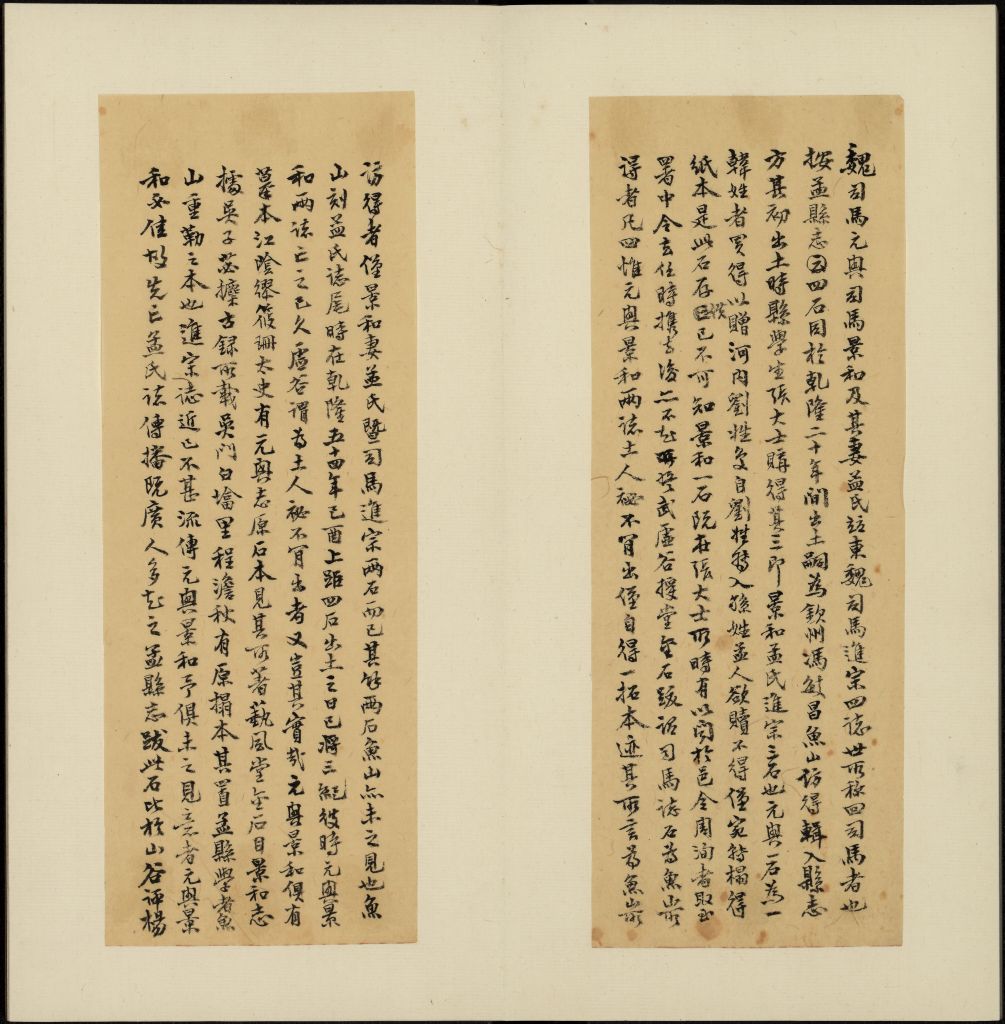 魏司馬元興司馬景和及其妻孟氏誌東魏司馬進宗四誌世所稱四司馬者也
按孟縣志云四石同於乾隆二十年間出土嗣為欽州馮敏昌魚山訪得輯入縣志
方其初出土時縣學生張大士購得其三即景和孟氏進宗三石也元興一石為一
韓姓者買得以贈河內劉姓复自劉姓轉入孫姓孟人欲贖不得僅宛轉搨得
紙本是此石存已不可知景和一石既在張大士所時有以聞於邑令周洵者取至
署中令去任時攜去後亦不知所終武虛谷授堂金石跋謂司馬誌石為魚山所
得者凡四惟元興景和兩誌土人祕不肯出僅自得一拓本迹其所言為魚山所
訪得者僅景和妻孟氏暨司馬進宗兩石而已其餘兩石魚山亦未之見也魚
山刻孟氏誌尾時在乾隆五十四年己酉上距四石出土之日已將三紀彼時元興景
和兩誌亡之已久虛谷謂為土人祕不肯出者又豈其實哉元興景和俱有
摹本江陰繆筱珊太史有元興志原石本見其所著藝風堂金石目景和志
據吳子苾攈古錄所載吳門白堉里程澹秋有原搨本其置孟縣學者魚
山重勒之本也進宗誌近亦不甚流傳元興景和予俱未之見意者元興景
和文佳故先亡孟氏誌傳播既廣人多知之孟縣志跋此石比於山谷評楊